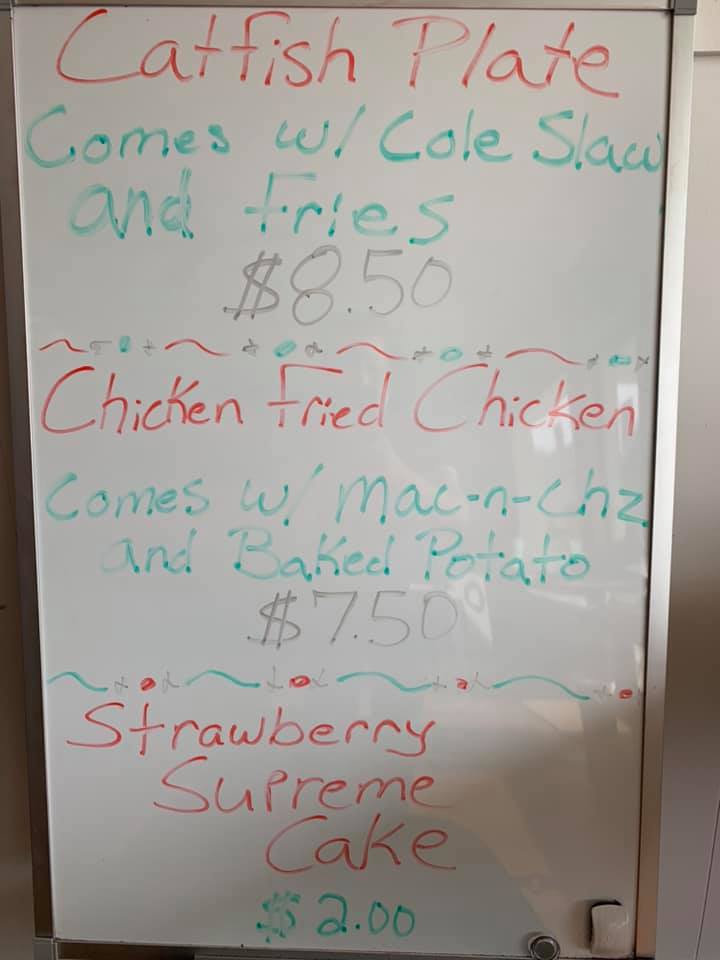 Catfish Plate
Comes w/ Cole Slaw
and fries
$8.50
Chicken fried Chicken
Comes w/ Mac-n-Chz
and Baked Potato
$7.50
Strawberry
Supreme
Cake
$2.00